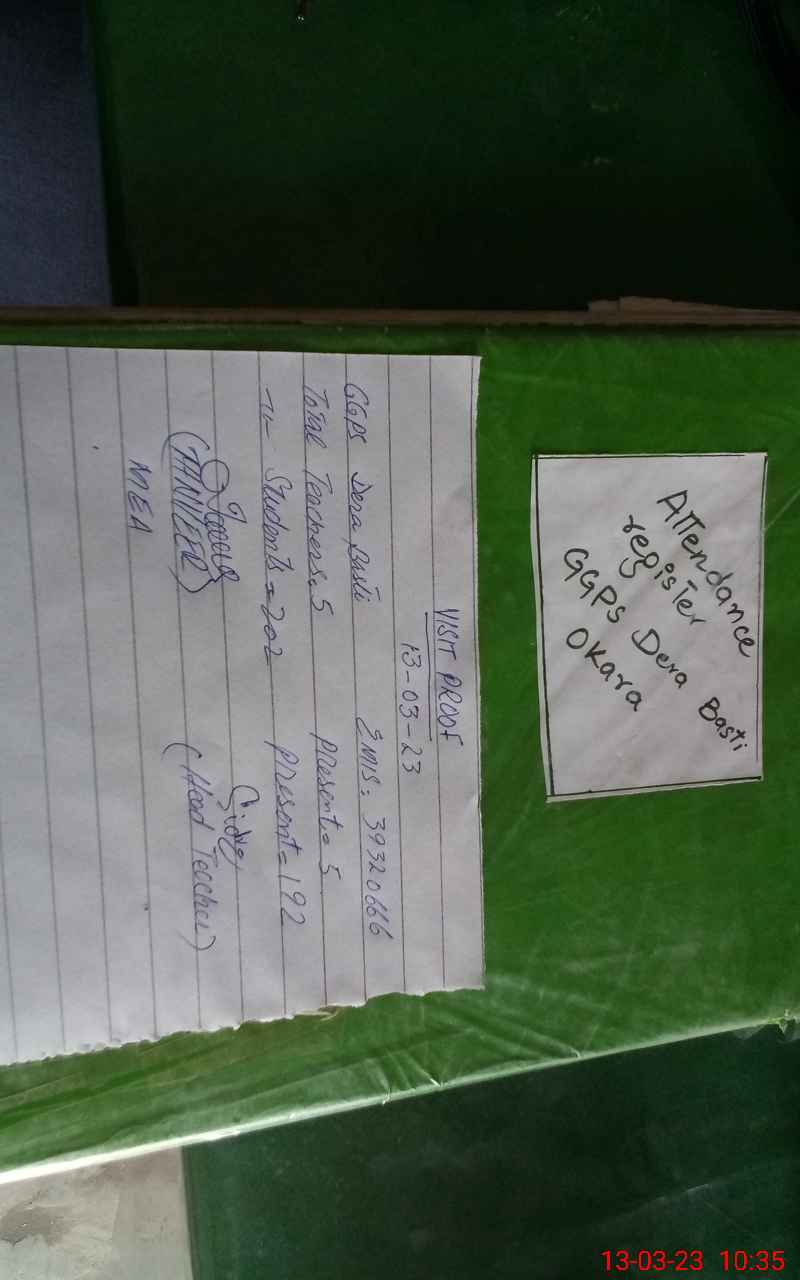 Attendance
register
GGPS Dera Basti
Okara
VISIT PROOF
13-03-23
GGPS Dera Basti EMIS: 39320666
Total Teachers = 5 Present = 5
-u- Students = 202 Present = 192
(TANVEER) (Head Teacher)
MEA
13-03-23 10:35